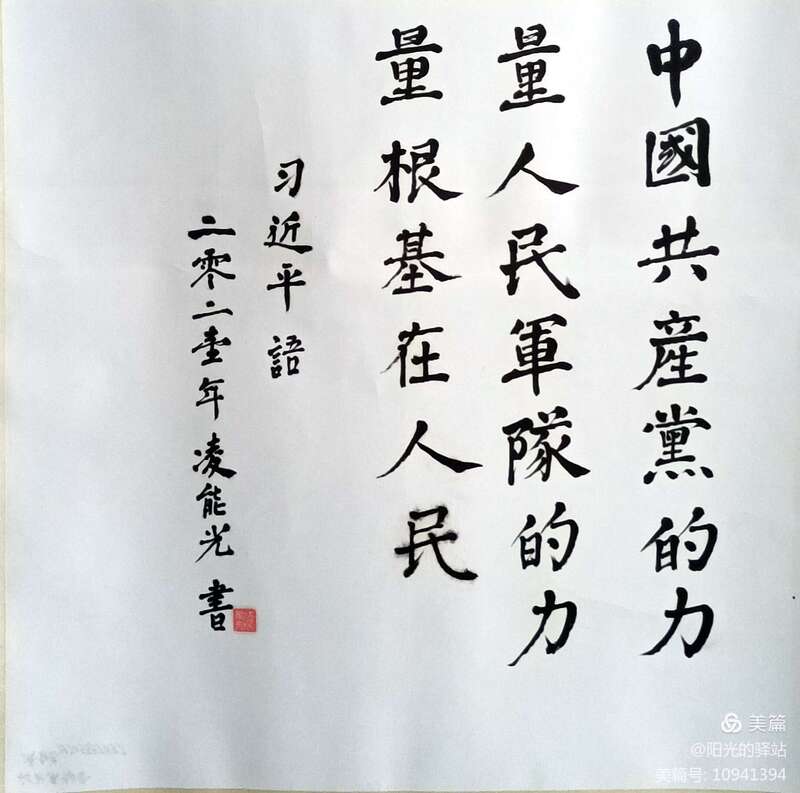 中國共產黨的力
量人民軍隊的力
量根基在人民
习近平語
二零二壹年凌能光書
美篇
@阳光的驿站
美篇号: 10941394